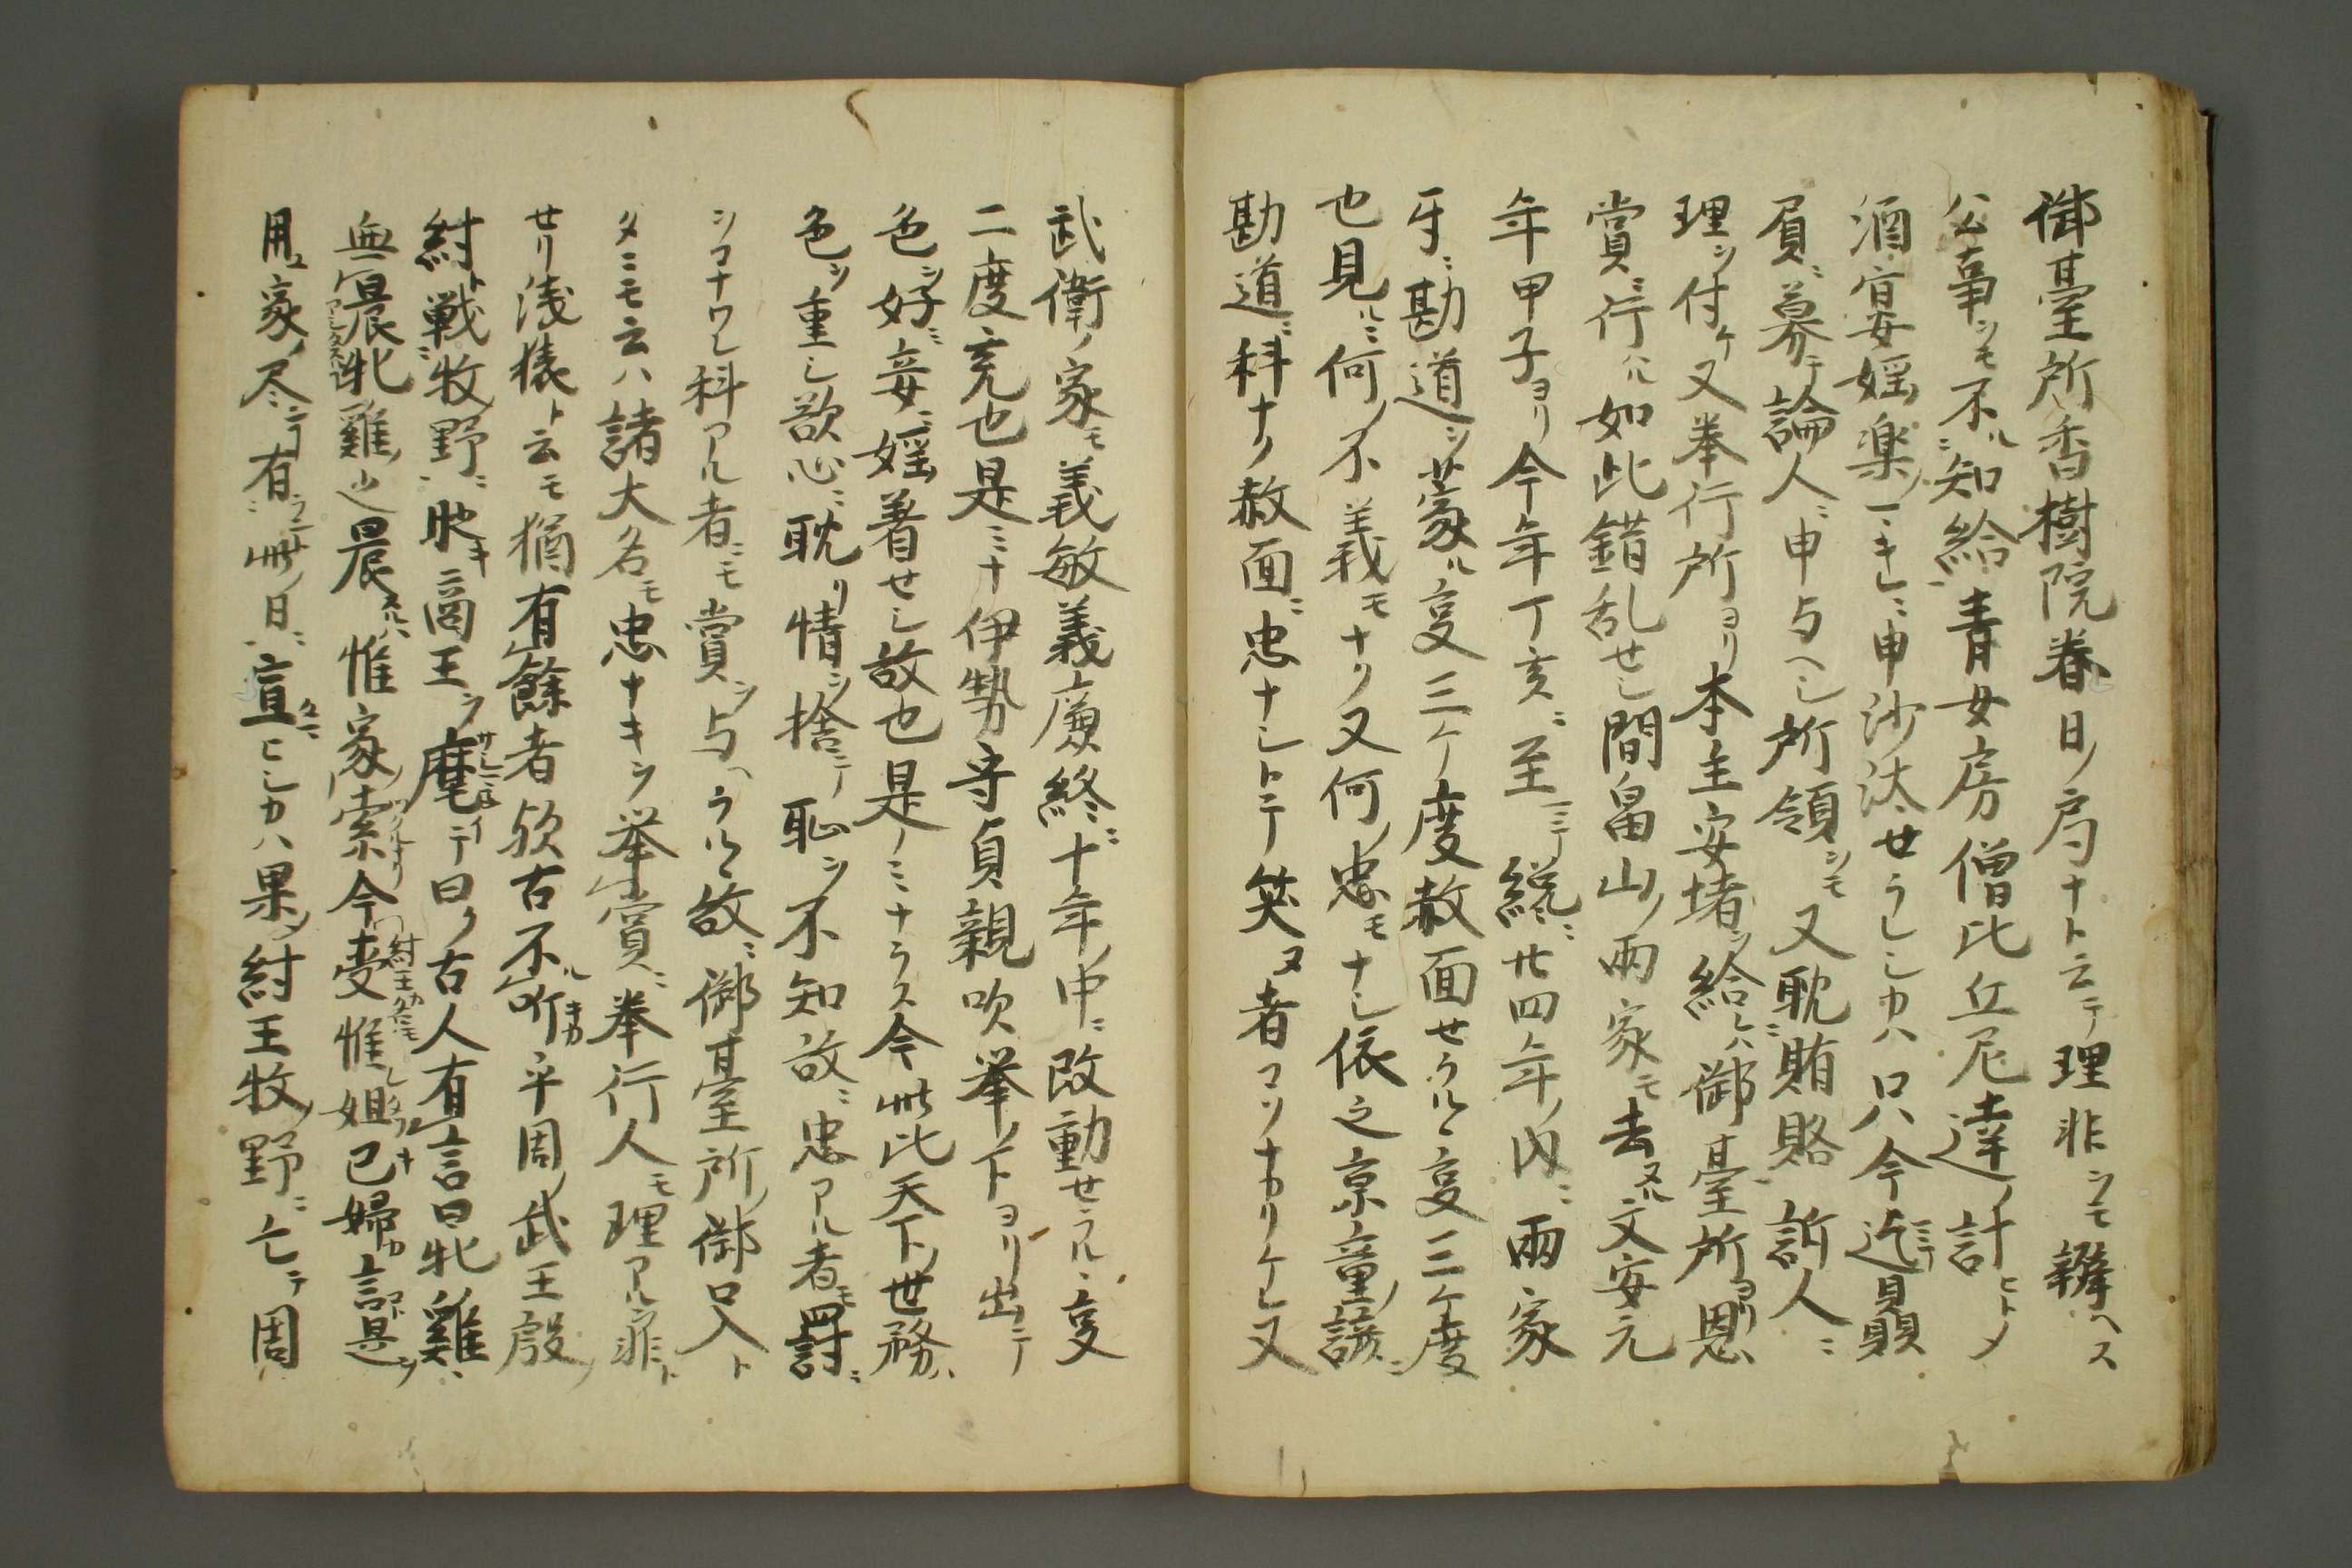 御臺所香樹院春日ノ局ナト云テ理非ヲモ辨ヘス
公事ヲモ不ル知給青女房僧比丘尼達ノ計ヒトメ
酒宴婬楽ノマキレニ申沙汰セラレシカハ只今迄ミテ贔
屓ニ募テ論人ニ申与ヘシ所領ヲモ又耽賄賂訴人ニ
理ヲ付ケ又奉行所ヨリ本主安堵ヲ給レハ御臺所ヨリ恩
賞ニ行ハル如此錯乱セシ間畠山ノ両家モ去ヌル文安元
年甲子ヨリ今年丁亥ニ至ミテ纔ニ廿四年ノ内ニ両家
牙ニ勘道ヲ蒙ル亥三ケ度赦面セラルヽ亥三ケ度
也見ルニ何ノ不義モナク又何ノ忠モナシ依之京童ノ諺ニ
勘道ニ科ナク赦面ニ忠ナシトテ笑ヌ者コソナカリケレ又
武衛ノ家モ義敏義廉終ニ十年ノ中ニ改動セラルヽ亥
二度充也是ミナ伊勢守貞親吹挙ノ下ヨリ出テ
色ヲ好ミ妾ニ婬着セシ故也是ノミナラス今此比天下ノ世務ハ
色ヲ重シ欲心ニ耽リ情ヲ捨テ恥ヲ不知故ニ忠アル者モ罸ニ
シコナワレ科アル者ニモ賞ヲ与ヘラルヽ故ニ御臺所ノ御口入ト
タニモ云ハ諸大名モ忠ナキヲ挙賞ニ奉行人モ理アル非ト
セリ浅猿ト云モ猶有餘者欤古不ル听キカ乎周ノ武王殷ノ
紂ト戦ニ牧野ニ時キ商王ヲ麾サシマネイテ曰ク古人有言曰牝雞ハ
無晨牝雞ノ之晨スルハ惟家ノ索ツクルナリ今紂王受惟妲己婦カ言コトハ是ヲ
用ユ家ノ尽ンコト有ラン此ノ日ニ宣ヒシカハ果ノ紂王牧ノ野ニ亡テ周ハ